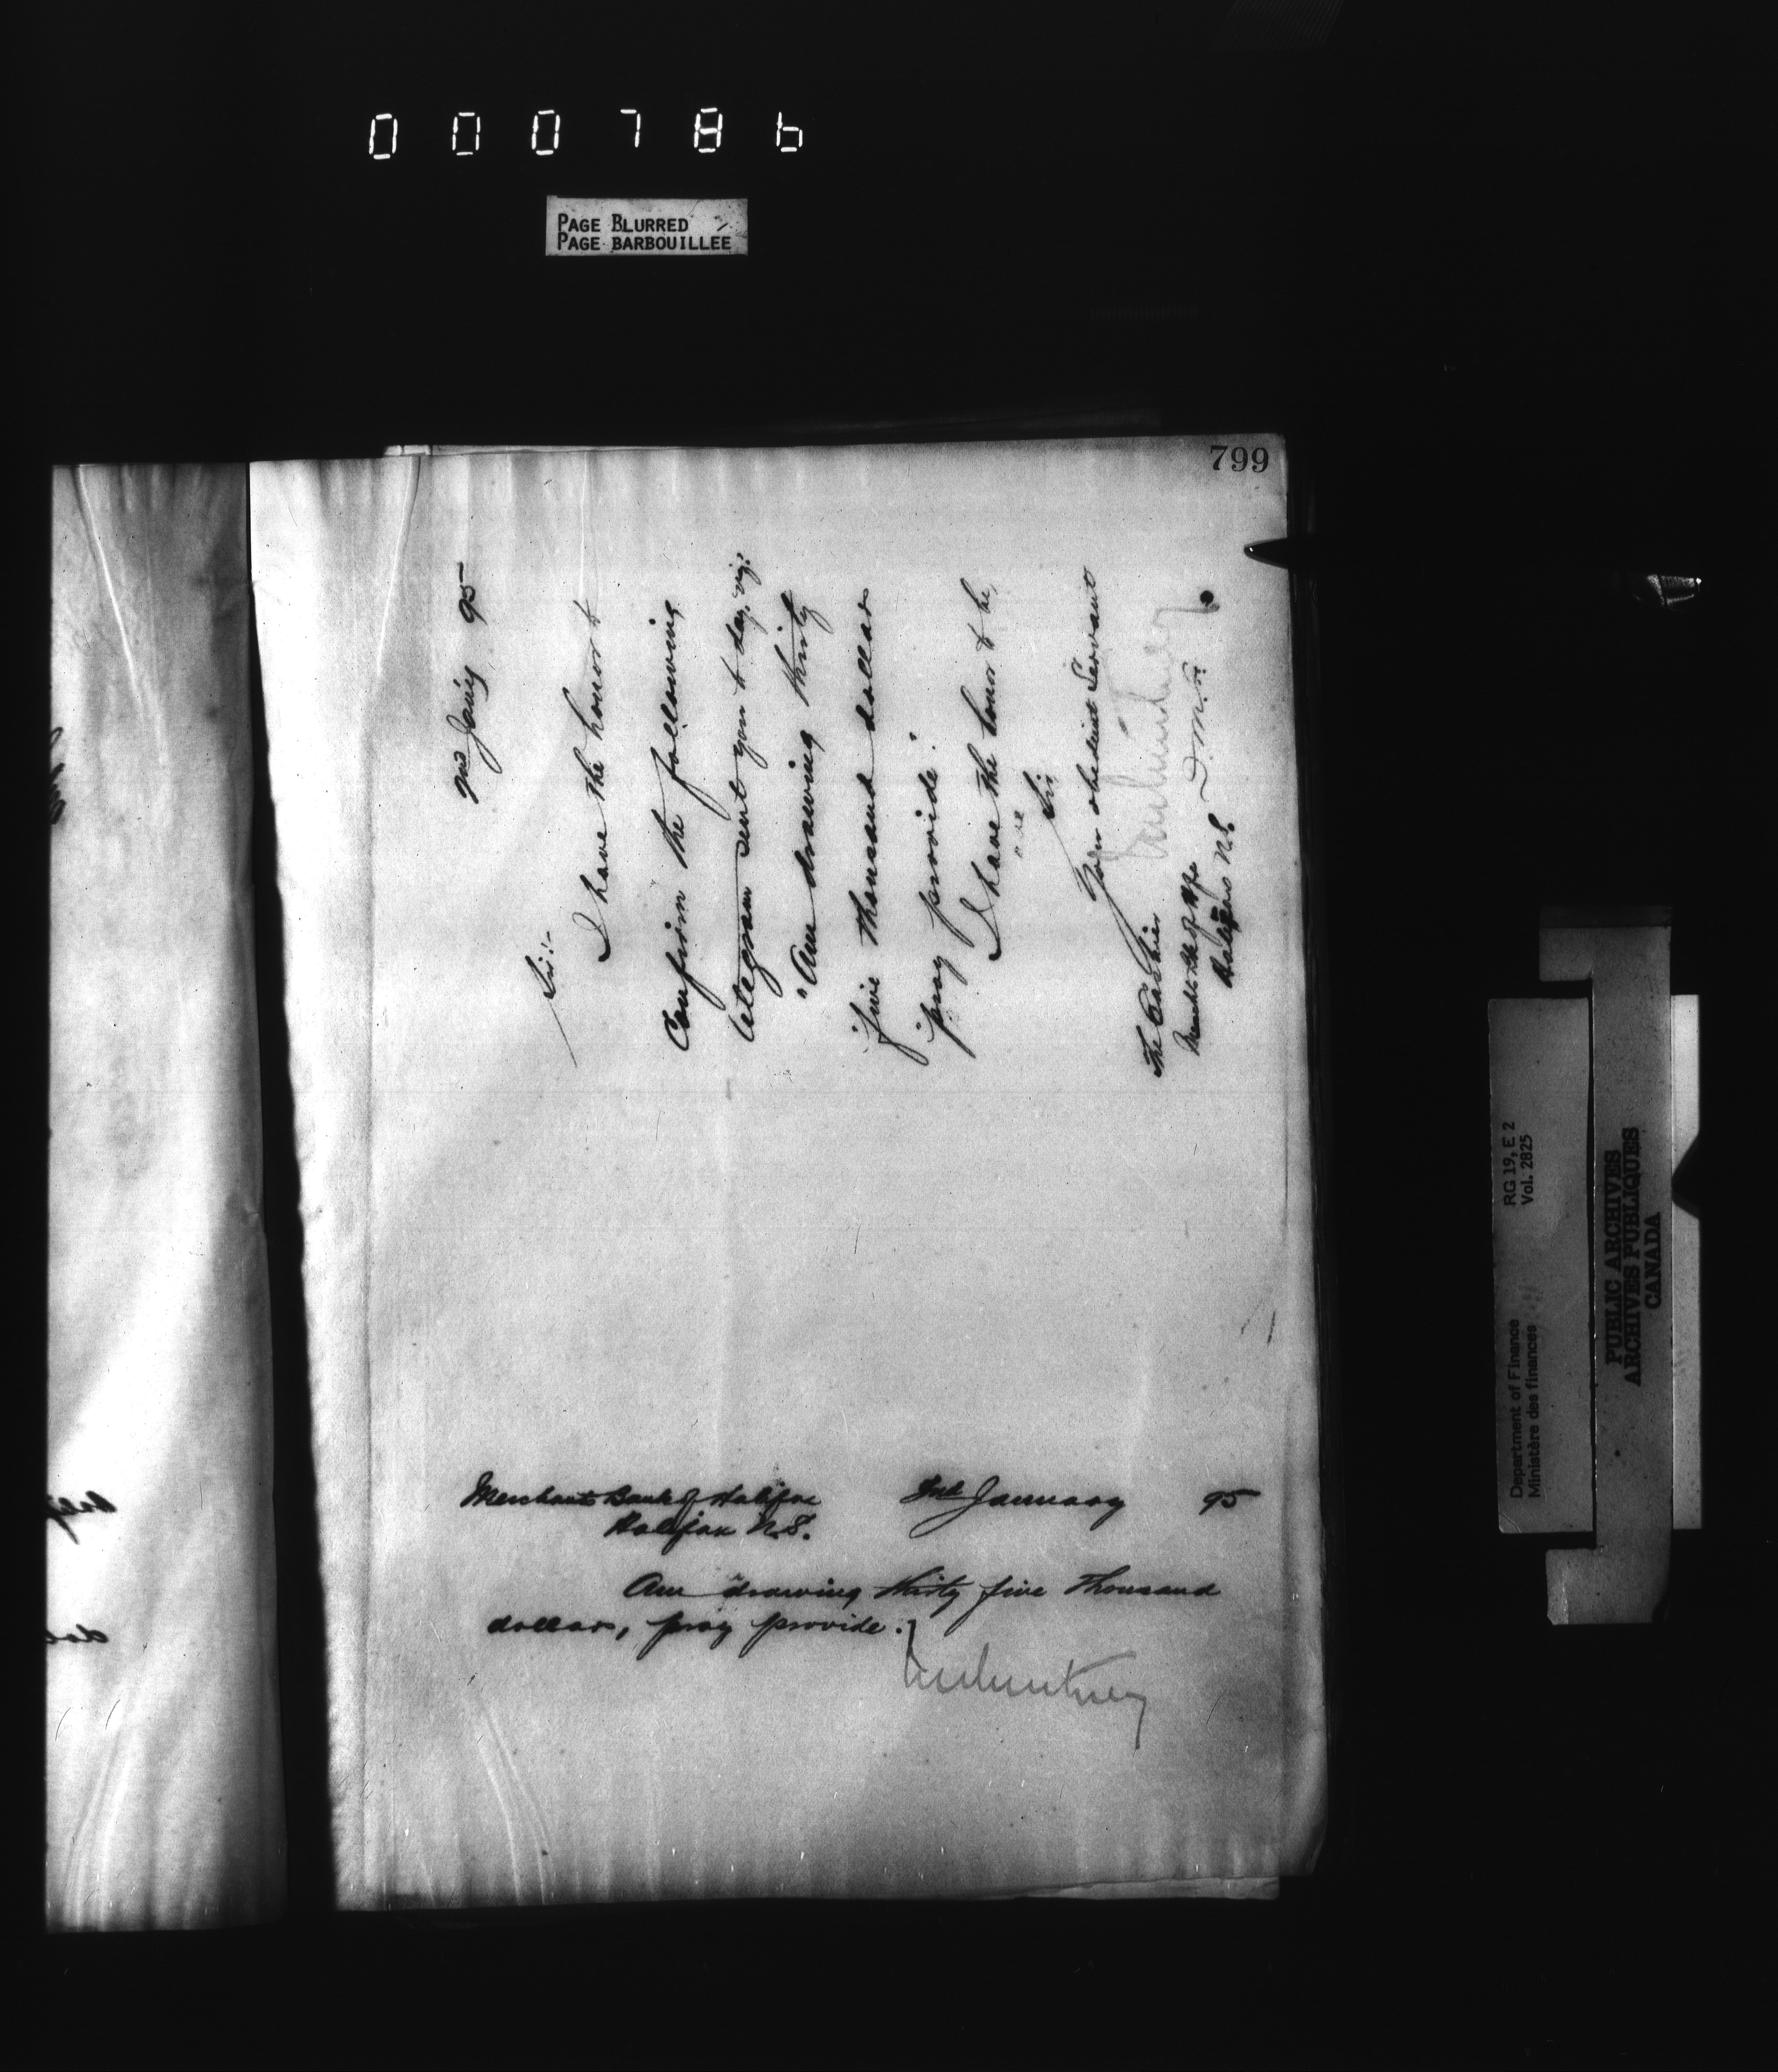 000786
PAGE BLURRED
PAGE BARBOUILLEE
799
Jan'y 95
Sir:-
I have the honor to
Confirm the following
telegram sent you to day, viz:
"Am drawing thirty
"five thousand dollars
"pray provide."
I have the honor to be,
Sir
Your obedient Servant
D.M.F.
The Cashier
Merch'ts Bk of Hfx
Halifax N.S.
Merchants Bank of Halifax January 95
Halifax N.S.
Am drawing thirty five thousand
dollars, pray provide.
RG 19, E 2
Vol. 2825
Department of Finance
Ministère des finances
PUBLIC ARCHIVES
ARCHIVES PUBLIQUES
CANADA